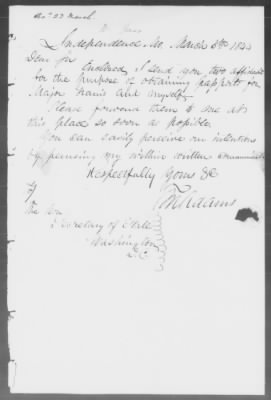 March
Independence, Mo. March 5th
Dear Sir
Enclosed I send you two
for the purpose of obtaining passports for
Major and myself.
Please forward them to me at
this place so soon as possible
You can easily perceive our intention
by perusing my within written
Respectfully Yours &c
The Hon
Secretary of State
Washington
D.C.